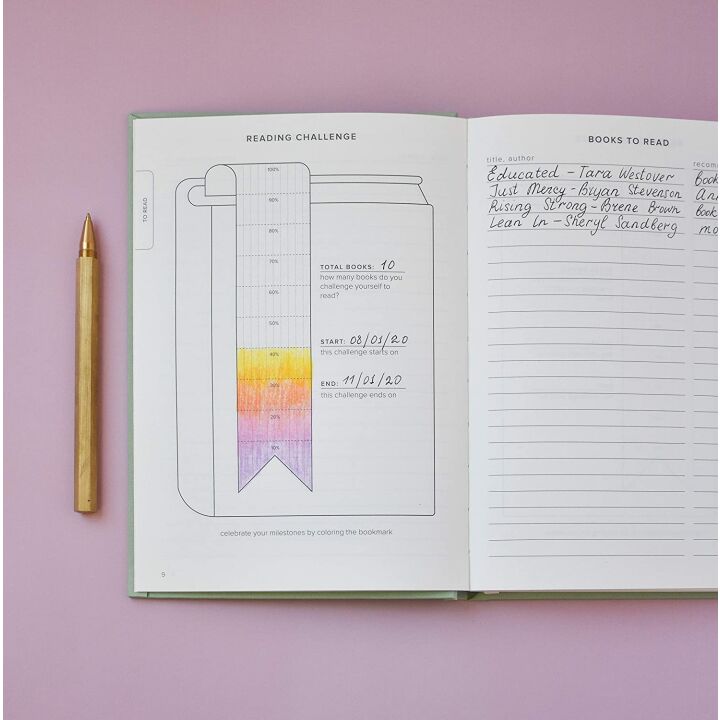 READING CHALLENGE
TO READ
100%
90%
80%
70%
60%
50%
40%
30%
20%
10%
TOTAL BOOKS: 10
how many books do you
challenge yourself to
read?
START: 08/01/20
this challenge starts on
END: 11/01/20
this challenge ends on
celebrate your milestones by coloring the bookmark
9
BOOKS TO READ
title, author
recom
Educated - Tara Westover
book
Just Mercy - Bryan Stevenson
Ann
Rising Strong - Brene Brown
book
Lean In - Sheryl Sandberg
mo